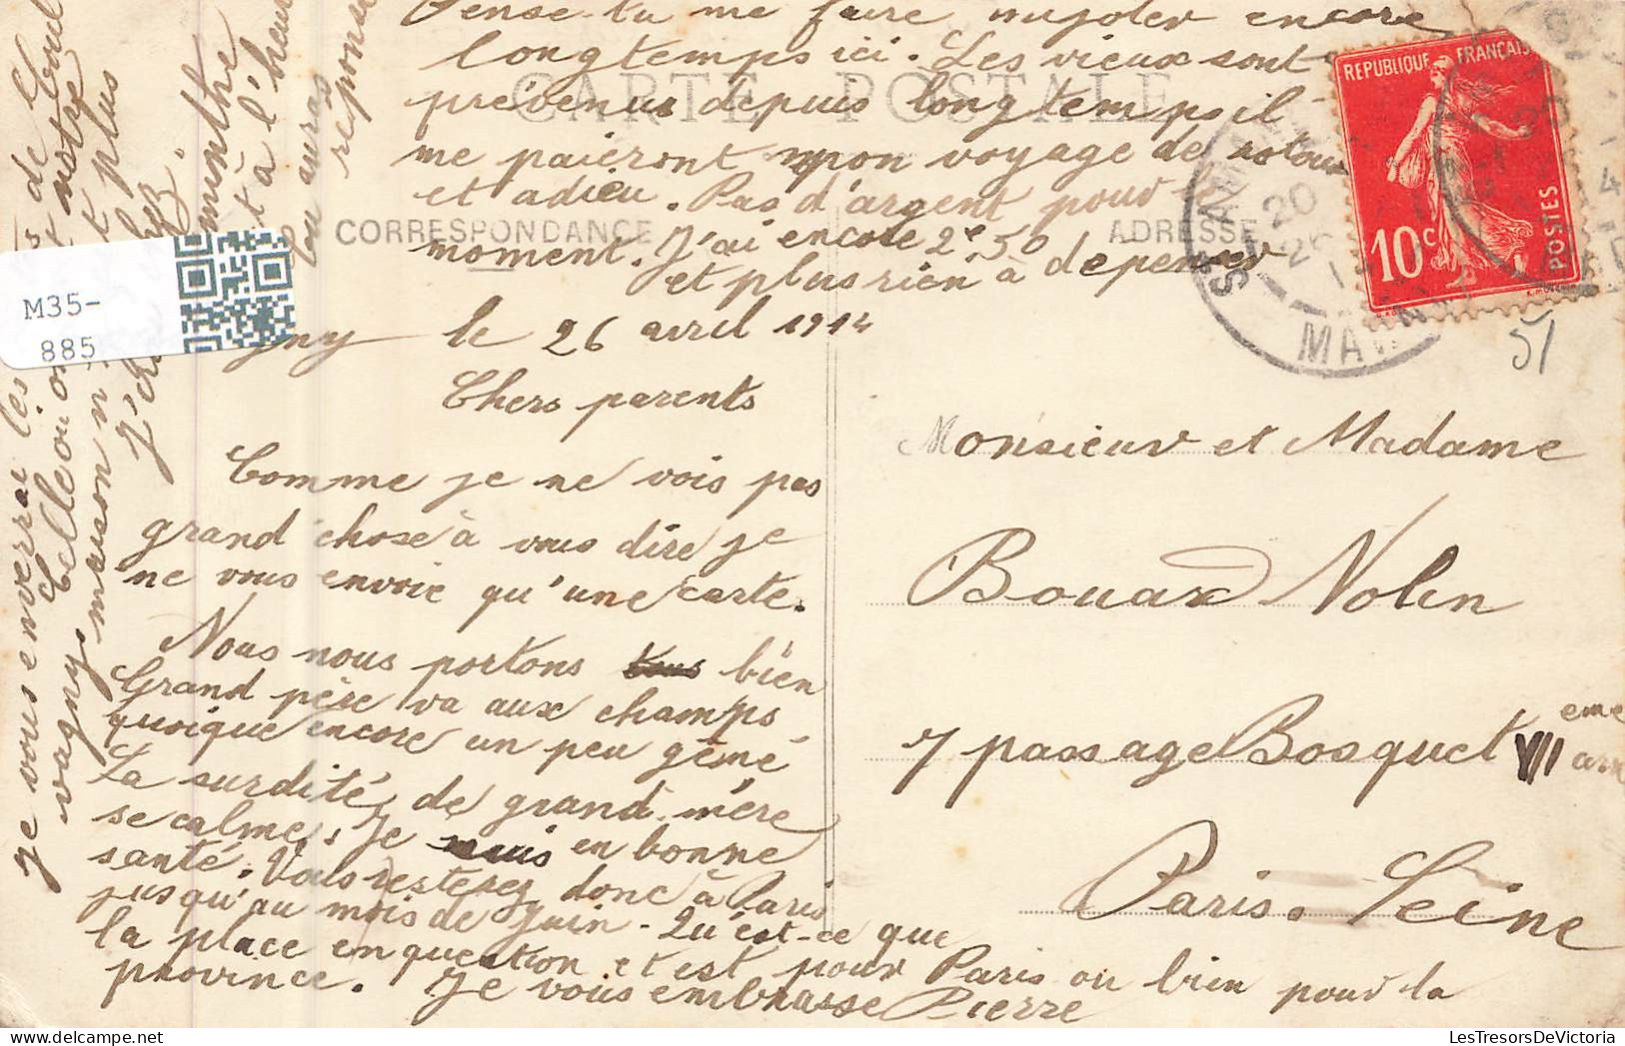 Pense-tu me faire mijoter encore
longtemps ici. Les vieux sont
prévenus depuis longtemps il
me paieront mon voyage de retour
et adieu. Pas d'argent pour le
moment. J'ai encore 2e 50
et plus rien à dépenser
CARTE POSTALE
CORRESPONDANCE
ADRESSE
REPUBLIQUE FRANÇAISE
10c
POSTES
20
26
MA
51
M35-
885
gny le 26 avril 1914
Chers parents
Comme je ne vois pas
grand chose à vous dire je
ne vous envoie qu'une carte.
Nous nous portons tous bien
Grand père va aux champs
quoique encore un peu gêné
La surdité de grand mère
se calme, Je suis en bonne
santé. Vous resterez donc à Paris
jusqu'au mois de Juin - Qu'est-ce que
la place en question et est pour Paris ou bien pour la
province. Je vous embrasse Pierre
Monsieur et Madame
Bouax Nolin
7 passage Bosquet VIIeme arr
Paris. Seine
je vous enverrai les de
Celle où on notre
vagny maison n plus
minthe
t à l'heure
tu auras
réponse
LesTresorsDeVictoria